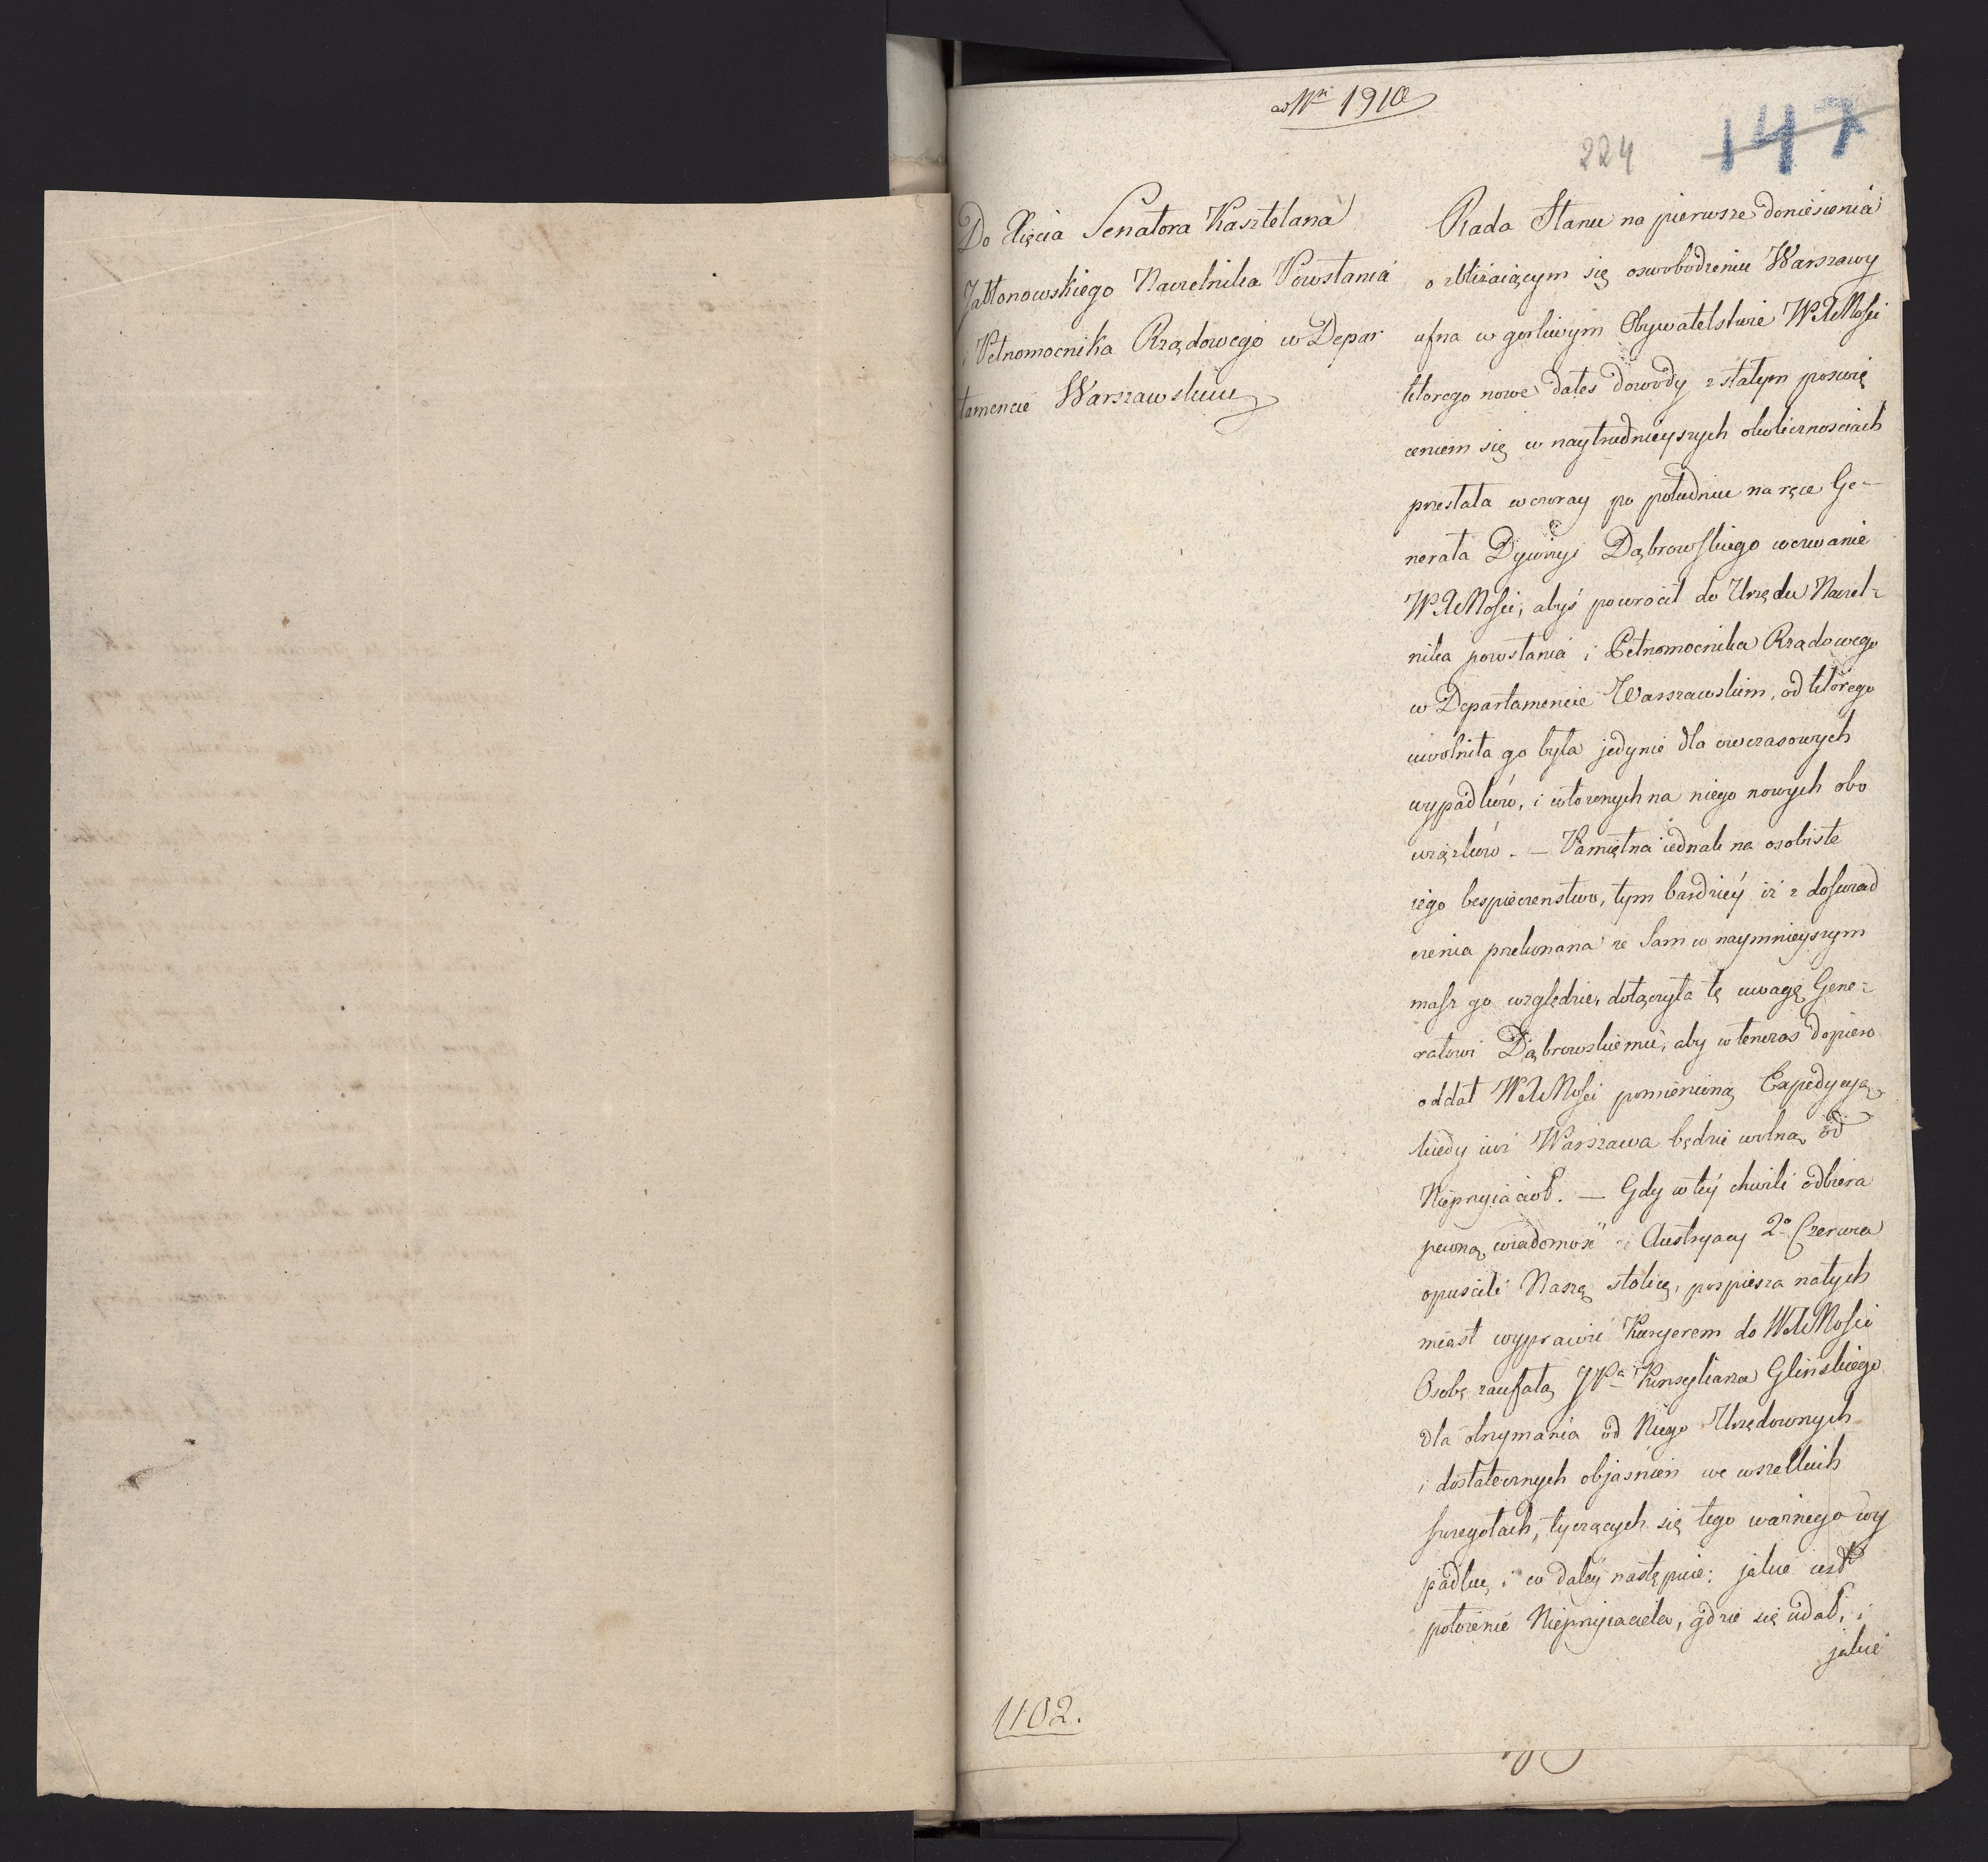 ad Nri 1910
224 147
Do Xięcia Senatora Kasztelana
Jabłonowskiego Naczelnika Powstania
i Pełnomocnika Rządowego w Depar
tamencie Warszawskim
Rada Stanu na pierwsze doniesienia
o zbliżaiącym się oswobodzeniu Warszawy
ufna w gorliwym Obywatelstwie WXMości
ktorego nowe dałeś dowody z stałym poswię
ceniem się w naytrudnieyszych okolicznosciach
przesłała wczoray po południu na ręce Ge-
nerała Dywizyi Dąbrowskiego wezwanie
WXMości, abyś powrócił do Urzędu Naczel-
nika powstania i Pełnomocnika Rządowego
w Departamencie Warszawskim, od którego
uwolniła go była jedynie dla owczasowych
wypadków, i włożonych na niego nowych obo
wiązków. — Pamiętna iednak na osobiste
iego bespieczenstwo, tym bardziéy iż z doświad
czenia przekonana że Sam w naymnieyszym
masz go względzie, dołączyła tę uwagę Gene-
rałowi Dąbrowskiemu, aby wtenczas dopiero
oddał WXMości pomienioną Expedycyą
kiedy iuż Warszawa będzie wolną od
Nieprzyiaciół. — Gdy w téy chwili odbiera
pewną wiadomość iż Austryacy 2o Czerwca
opuscili Naszą stolicę, pospiesza natych
miast wyprawić Kuryerem do WXMości
Osobę zaufałą JPa Konsyliarza Glińskiego
dla otrzymania od Niego Urzędownych
i dostatecznych objasnień we wszelkich
szczegołach, tyczących się tego ważnego wy
padku, i co daléy nastąpnie: jakie iest
położenie Nieprzyiaciela, gdzie się udał, i
jakie
1102.